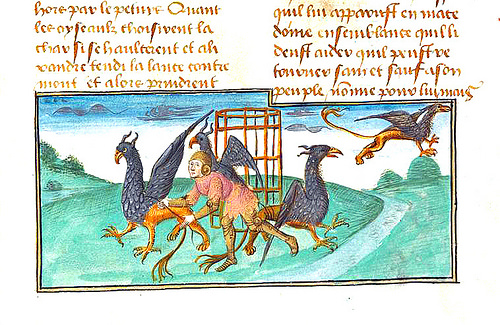 hors par le pertuis Quant
les oyseaulx choisirent la
char si se haulcerent et ali
xandre tendi la lance contre
mont et alors prindrent
quil lui apparust en mate
dome en semblance quil li
deust aider quil peust re
tourner sain et sauf a son
peuple